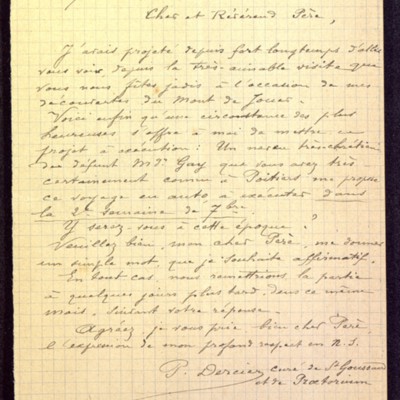 Cher et Révérend Père,
J'avais projeté depuis fort longtemps d'aller
vous voir, depuis la très-aimable visite que
vous nous fîtes jadis à l'occasion de mes
découvertes du Mont de Jouer.
Voici enfin qu'une circonstance des plus
heureuses s'offre à moi de mettre ce
projet à exécution: Un neveu
du défunt Mr. Guy que vous avez très
certainement connu à Poitiers me propose
ce voyage en auto, à exécuter dans
la 2e semaine de 7bre.
Y serez-vous à cette époque?
Veuillez bien, mon cher Père, me donner
un simple mot que je souhaite affirmatif.
En tout cas, nous remettrions la partie
à quelques jours plus tard, dans ce même
mois, suivant votre réponse.
Agréez, je vous prie bien cher Père,
l'expression de mon profond respect en N. S.
P. Dercier curé de St Goussaud
et de Praetorium